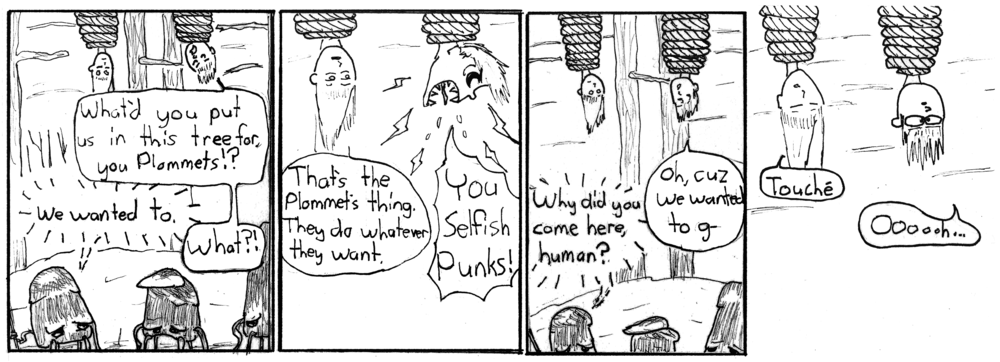 What'd you put
us in this tree for,
you Plommets!?
We wanted to.
What?!
That's the
Plommet's thing.
They do whatever
they want.
You
Selfish
Punks!
Why did you
come here,
human?
Oh, cuz
we wanted
to g-
Touché
Oooooh...